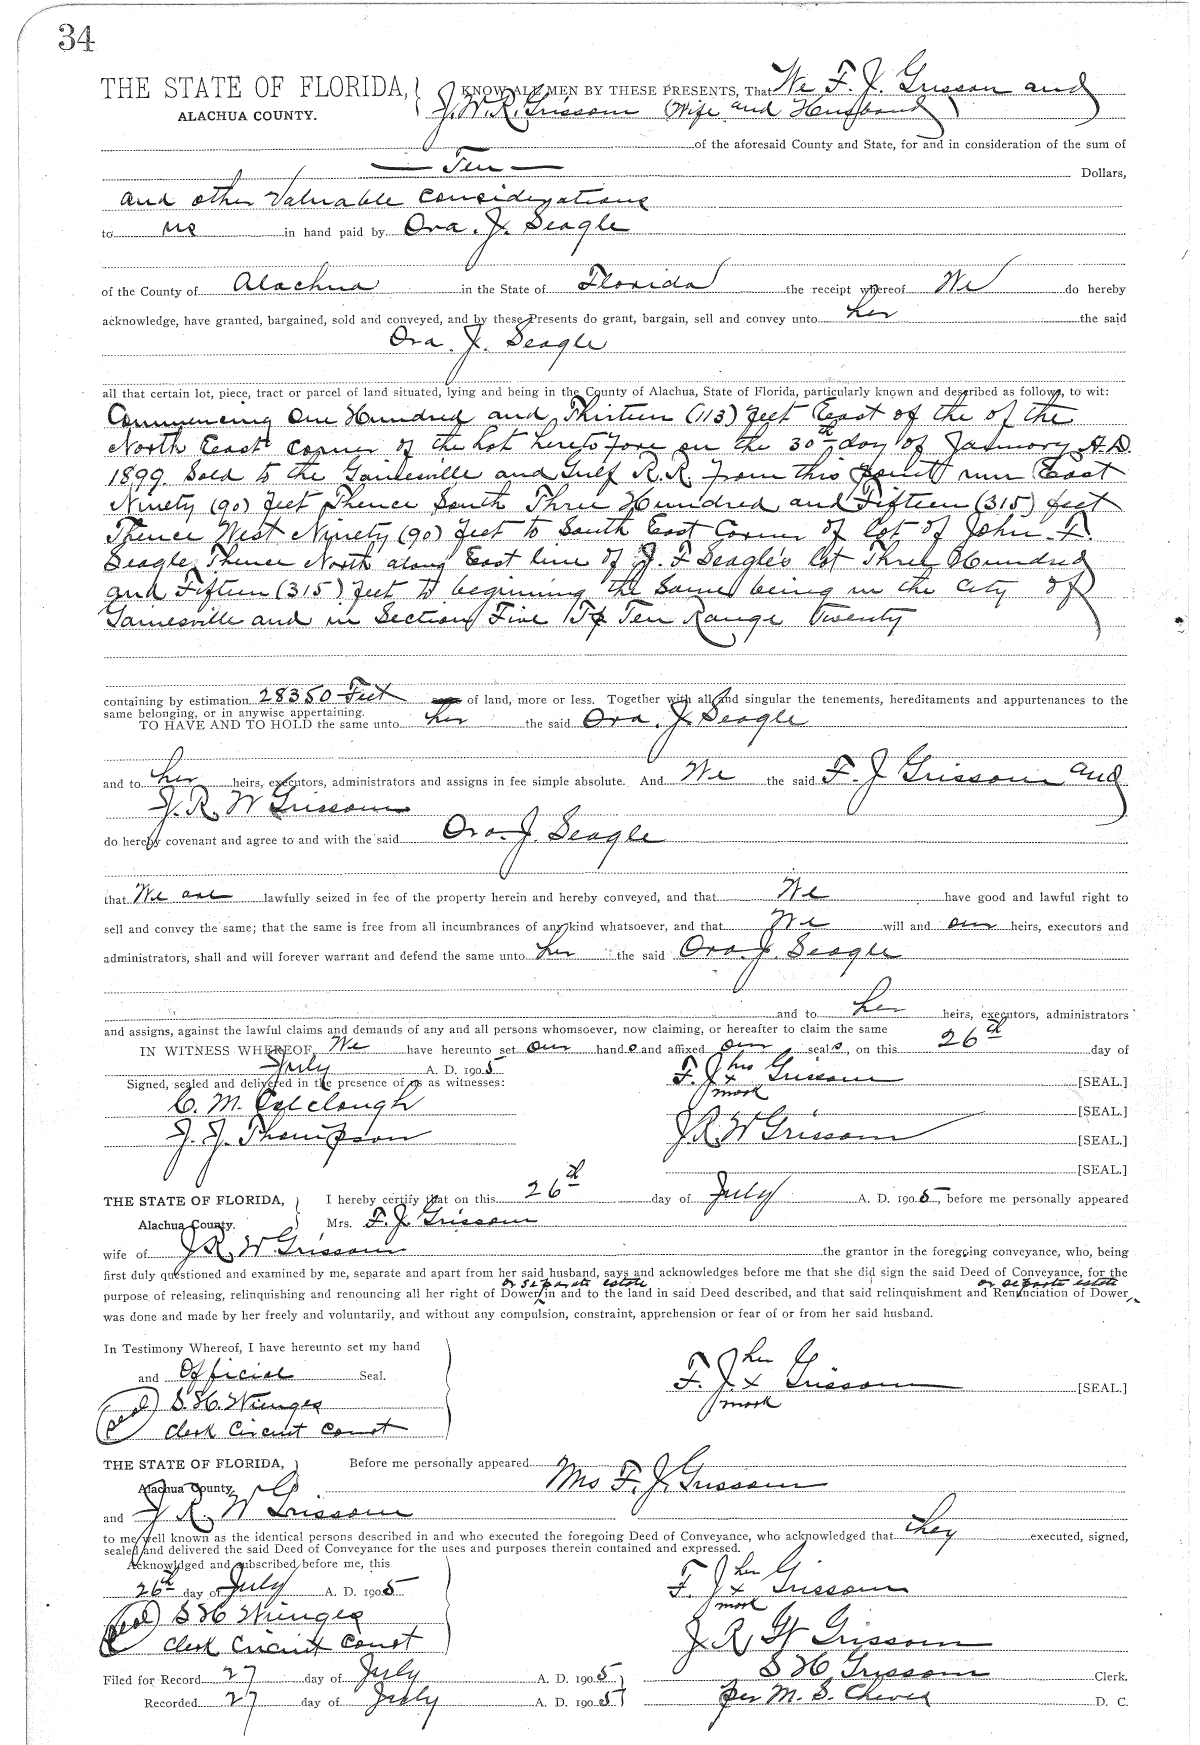 34
THE STATE OF FLORIDA, KNOW ALL MEN BY THESE PRESENTS, That We F. J. Grissom and
ALACHUA COUNTY. J. W. R. Grissom (Wife and Husband)
of the aforesaid County and State, for and in consideration of the sum of
— Ten — Dollars,
and other Valuable considerations
to us in hand paid by Ora. J. Seagle
of the County of Alachua in the State of Florida the receipt whereof We do hereby
acknowledge, have granted, bargained, sold and conveyed, and by these Presents do grant, bargain, sell and convey unto her the said
Ora. J. Seagle
all that certain lot, piece, tract or parcel of land situated, lying and being in the County of Alachua, State of Florida, particularly known and described as follows, to wit:
Commencing One Hundred and Thirteen (113) feet East of the of the
North East corner of the Lot heretofore on the 30th day of January A.D.
1899 Sold to the Gainesville and Gulf R.R. From this point run East
Ninety (90) feet Thence South Three Hundred and Fifteen (315) feet
Thence West Ninety (90) feet to South East Corner of lot of John F.
Seagle, Thence North along East line of J. F Seagle's lot Three Hundred
and Fifteen (315) feet to beginning the Same being in the City of
Gainesville and in Section Five Tp Ten Range Twenty
containing by estimation 28350 Feet of land, more or less. Together with all and singular the tenements, hereditaments and appurtenances to the
same belonging, or in anywise appertaining.
TO HAVE AND TO HOLD the same unto her the said Ora. J. Seagle
and to her heirs, executors, administrators and assigns in fee simple absolute. And We the said F. J Grissom and
J. R. W Grissom
do hereby covenant and agree to and with the said Ora. J. Seagle
that We are lawfully seized in fee of the property herein and hereby conveyed, and that We have good and lawful right to
sell and convey the same; that the same is free from all incumbrances of any kind whatsoever, and that We will and our heirs, executors and
administrators, shall and will forever warrant and defend the same unto her the said Ora. J. Seagle
and to her heirs, executors, administrators
and assigns, against the lawful claims and demands of any and all persons whomsoever, now claiming, or hereafter to claim the same
IN WITNESS WHEREOF, We have hereunto set our hands and affixed our seals, on this 26th day of
July A. D. 1905 F. J. his x mark Grissom [SEAL.]
Signed, sealed and delivered in the presence of us as witnesses:
C. M. Colclough [SEAL.]
J. J. Thompson J. R. W Grissom [SEAL.]
[SEAL.]
THE STATE OF FLORIDA, I hereby certify that on this 26th day of July A. D. 1905, before me personally appeared
Alachua County. Mrs. F. J. Grissom
wife of J. R. W Grissom the grantor in the foregoing conveyance, who, being
first duly questioned and examined by me, separate and apart from her said husband, says and acknowledges before me that she did sign the said Deed of Conveyance, for the
or separate estate or separate estate
purpose of releasing, relinquishing and renouncing all her right of Dower in and to the land in said Deed described, and that said relinquishment and Renunciation of Dower
was done and made by her freely and voluntarily, and without any compulsion, constraint, apprehension or fear of or from her said husband.
In Testimony Whereof, I have hereunto set my hand
and Official Seal. F. J. her x mark Grissom [SEAL.]
(seal) S. H. Wienges
Clerk Circuit Court
THE STATE OF FLORIDA, Before me personally appeared Mrs F. J. Grissom
Alachua County.
and J. R. W Grissom
to me well known as the identical persons described in and who executed the foregoing Deed of Conveyance, who acknowledged that they executed, signed,
sealed and delivered the said Deed of Conveyance for the uses and purposes therein contained and expressed.
Acknowldged and subscribed before me, this
26th day of July A. D. 1905 F. J. her x mark Grissom
(seal) S H Wienges
Clerk Circuit Court J R W Grissom
Filed for Record 27 day of July A. D. 1905 S H Grissom Clerk.
Recorded 27 day of July A. D. 1905 per M. S. Cheves D. C.